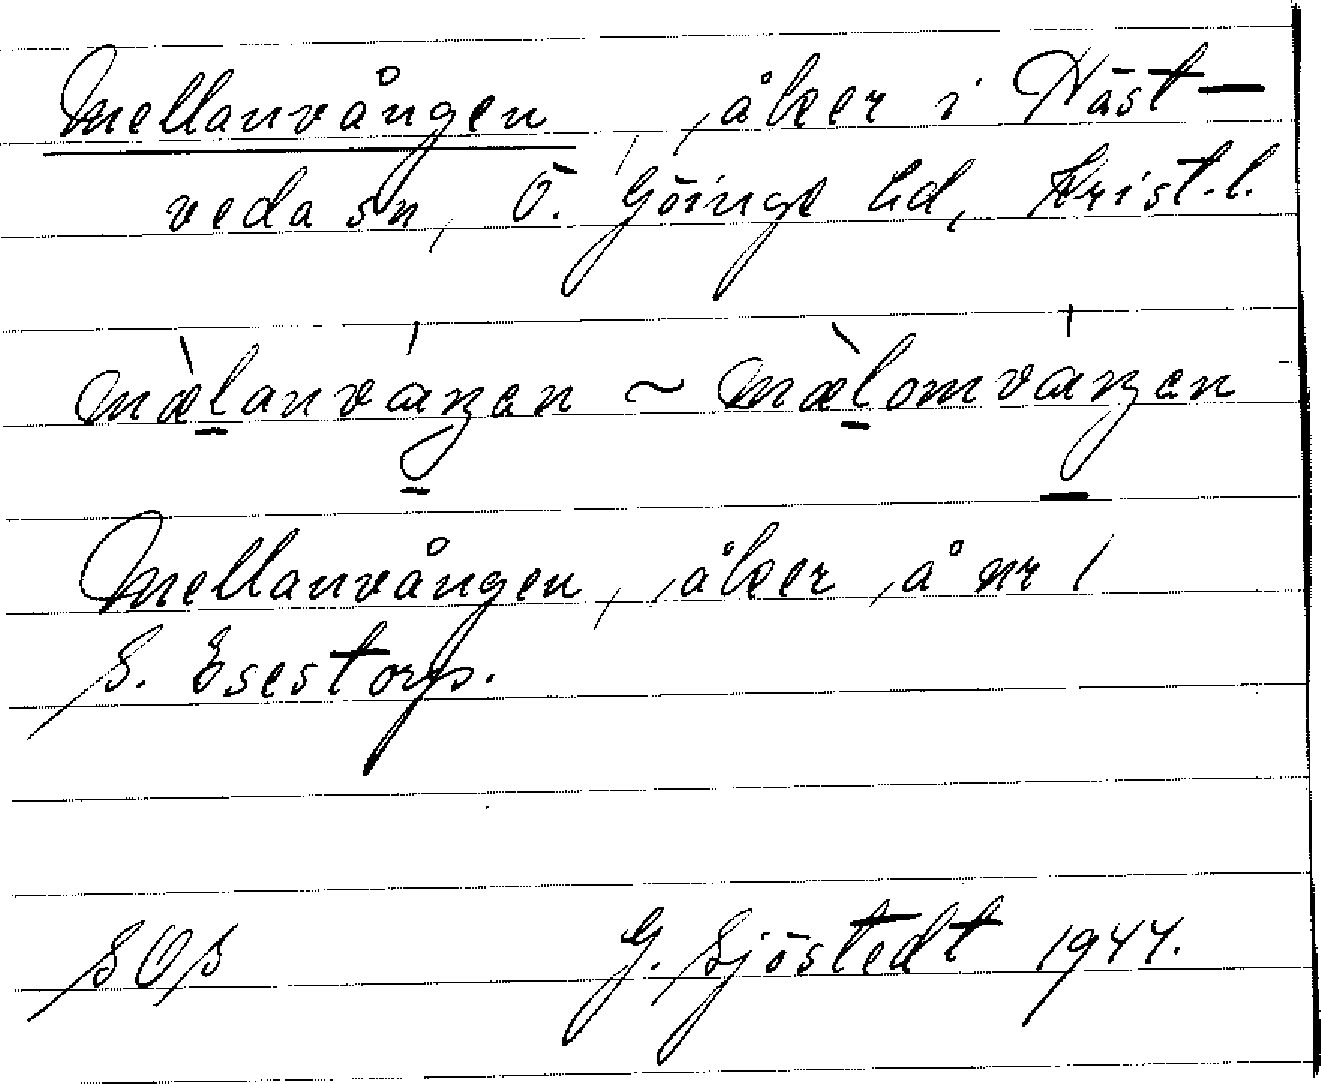 Mellanvången, åker i Näst-
veda sn, Ö. Göinge hd, Krist.l.
mæ̀lanváŋen ~ mæ̀lomváŋen
Mellanvången, åker å nr 1
S. Esestorp.
SOS G. Sjöstedt 1944.